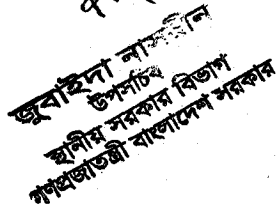 জুবাইদা নাসরীন
উপসচিব
স্থানীয় সরকার বিভাগ
গণপ্রজাতন্ত্রী বাংলাদেশ সরকার